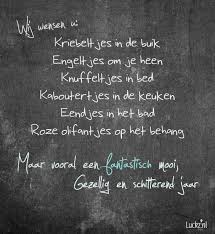 Wij wensen u:
Kriebeltjes in de buik
Engeltjes om je heen
Knuffeltjes in bed
Kaboutertjes in de keuken
Eendjes in het bad
Roze olifantjes op het behang
Maar vooral een fantastisch mooi,
Gezellig en schitterend jaar
Luckz.nl